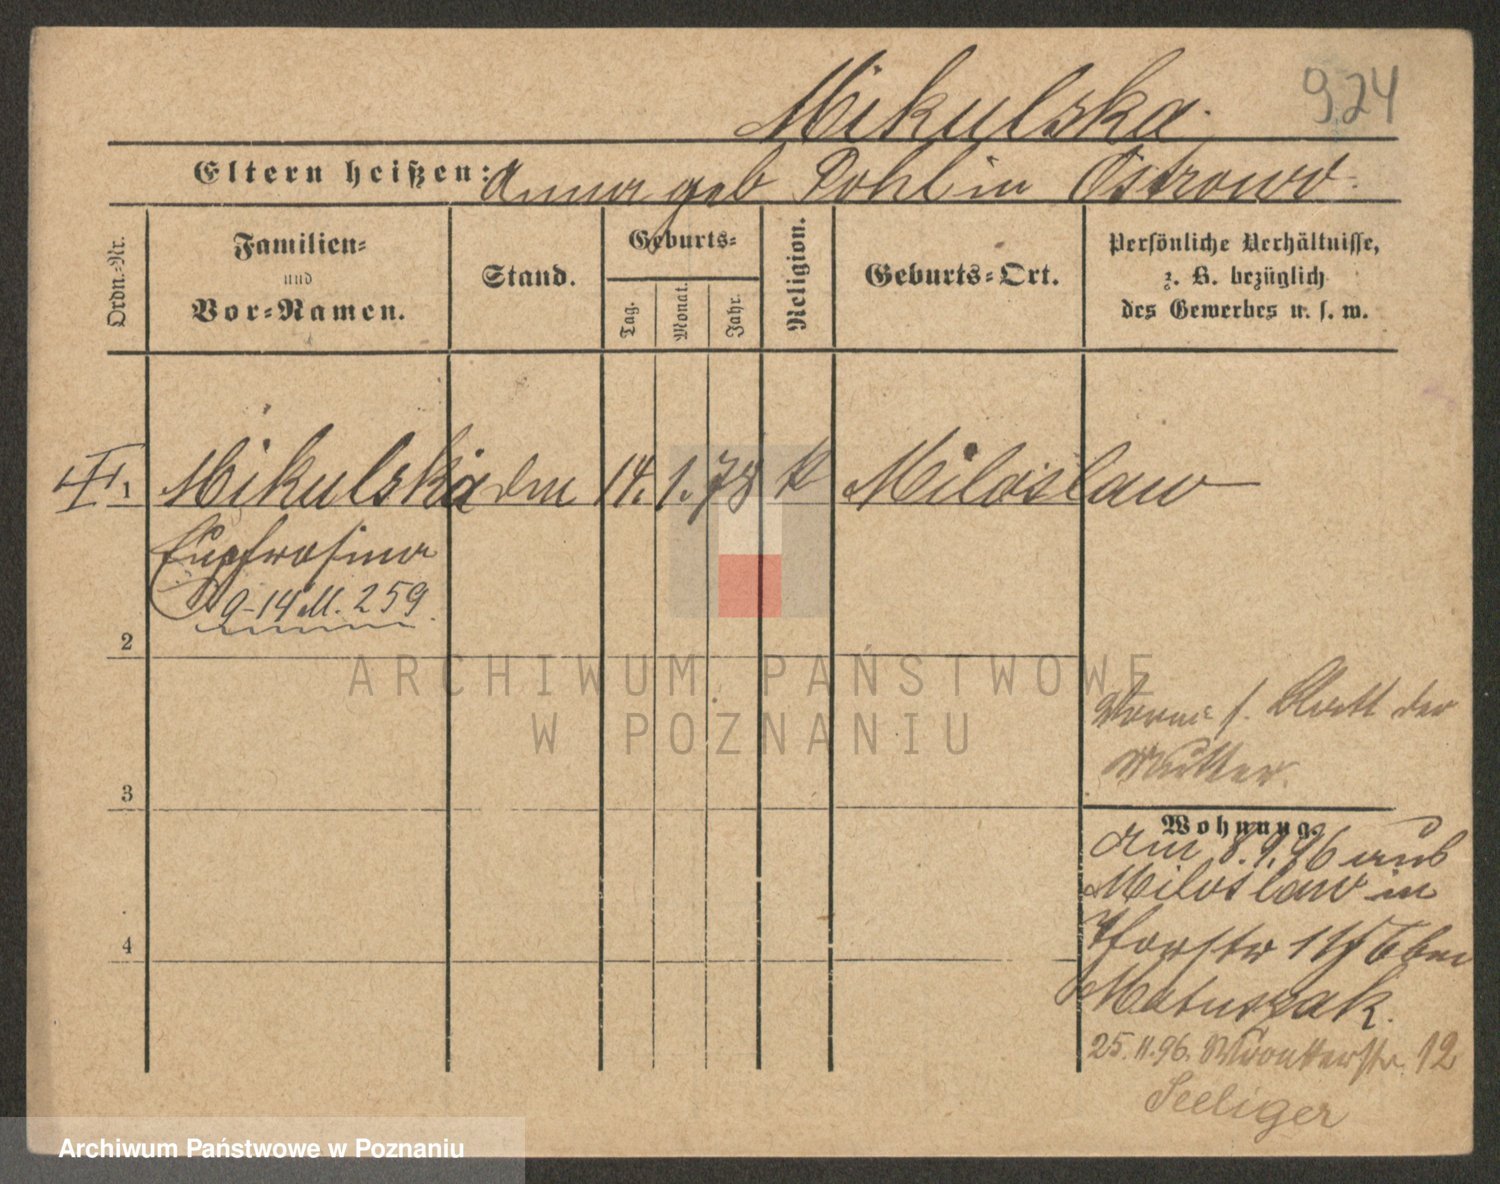 Mikulska.
924
Eltern heißen: Anna geb Pohl in Ostrowo.
Ordn.-Nr.
Familien-
und
Vor-Namen.
Stand.
Geburts-
Tag.
Monat.
Jahr.
Religion.
Geburts-Ort.
Persönliche Verhältnisse,
z. B. bezüglich
des Gewerbes u. s. w.
1 Mikulska 14. 1. 78 k Miloslaw
Eupfrosina
9-14 M. 259.
2
3
4
Vorne s. Blatt der
Mutter.
Wohnung.
am 8.9.96 aus
Miloslaw in
bei
Matuszak.
25.11.96. Wronkerstr. 12
Seeliger
ARCHIWUM PAŃSTWOWE
W POZNANIU
Archiwum Państwowe w Poznaniu